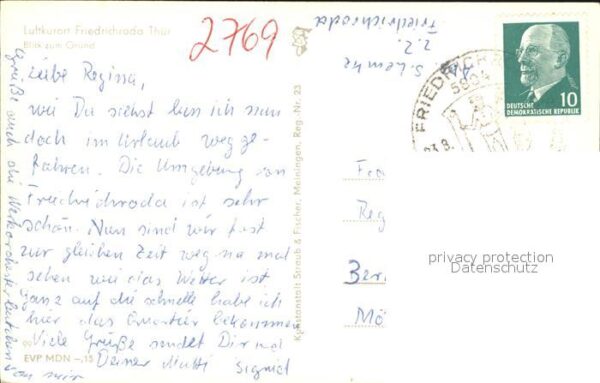 Luftkurort Friedrichroda Thür
Blick zum Grund
2769
Liebe Regina,
wie Du siehst bin ich nun
doch im Urlaub wegge-
fahren. Die Umgebung von
Friedrichroda ist sehr
schön. Nun sind wir fast
zur gleichen Zeit weg na mal
sehen wie das Wetter ist
Ganz auf die schnelle habe ich
hier das Quartier bekommen
Viele Grüße sendet Dir und
Deiner Mutti Sigrid
Grüße auch die Werkorchesterleutchen
von mir
EVP MDN –.15
Kunstanstalt Straub & Fischer, Meiningen, Reg.-Nr. 23
S. Lemke
z.Z.
Friedrichroda
FRIEDRICHR
5804
23.8.
DEUTSCHE
DEMOKRATISCHE REPUBLIK
10
Reg
Ber
Mö
privacy protection
Datenschutz